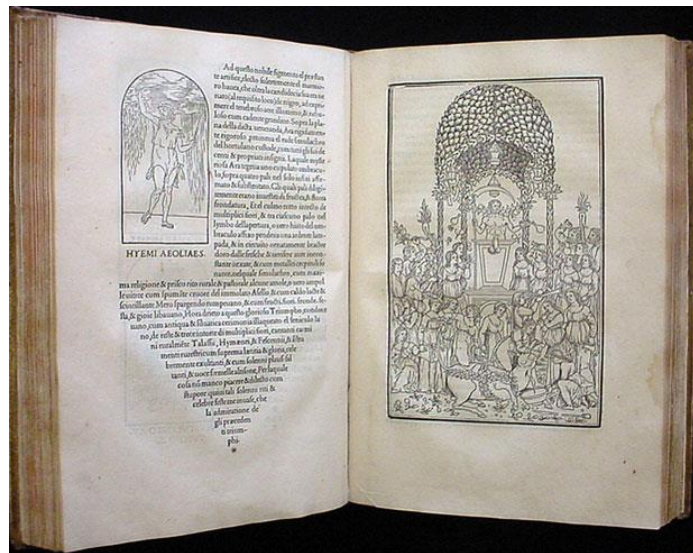 HYEMI AEOLIAES.
Ad questo nobile figmento el præstante
te artifice, electo solertemente el marmo
ro hauea, che oltra la candidecia sua era ue
nato (al requisito loco) de nigro, ad expri
mere el tenebroso aere illumino, & nebu
loso cum cadente grandine. Sopra la pla
na della dicta ueneranda Ara rigidamen
te rigoroso promineua el rude simulachro
del hortulano custode, cum tutti gli sui de
centi & propriati insignii. La quale myste
riosa Ara tegeua uno cupulato umbracu
lo, sopra quatro pali nel solo infixi affir
mato & substentato. Gli quali pali dilige
temente erano inuestiti di fructea, & florea
frondatura, Et el culmo tutto intecto de
multiplici fiori, & tra ciascuno palo nel
lymbo dellapertura, o uero hiato del um
braculo affixo pendeua una ardente lampa
pada, & in circuito ornatamente bractee
doro dalle fresche & uerifere aure incon
stante uexate, & cum metallei crepituli so
nante, nel quale simulachro, cum maxi
ma religione & prisco rito rurale & pastorale
scintillante Mero spargendo rumpeuano, & cum fructi, fiori, fronde, fe
sta, & gioie libauano, Hora drieto a questo glorioso Triumpho, conduce
uano, cum antiqua & siluatica cerimonia illaqueato el seniculo Ia
no, de reste & trece intorte di multiplici fiori, cantanti carmi
ni ruralmente Talassii, Hymænei, & Fescennii, & instru
menti rurestri cum suprema lætitia & gloria, cele
bremente exultanti, & cum solenni plausi sal
tanti, & uoce femelle altisone, Per laquale
cosa non manco piacere & dilecto cum
stupore quiui tali solenni riti &
celebre feste me inuase, che
la admiratione de
gli præceden
ti trium-
phi.